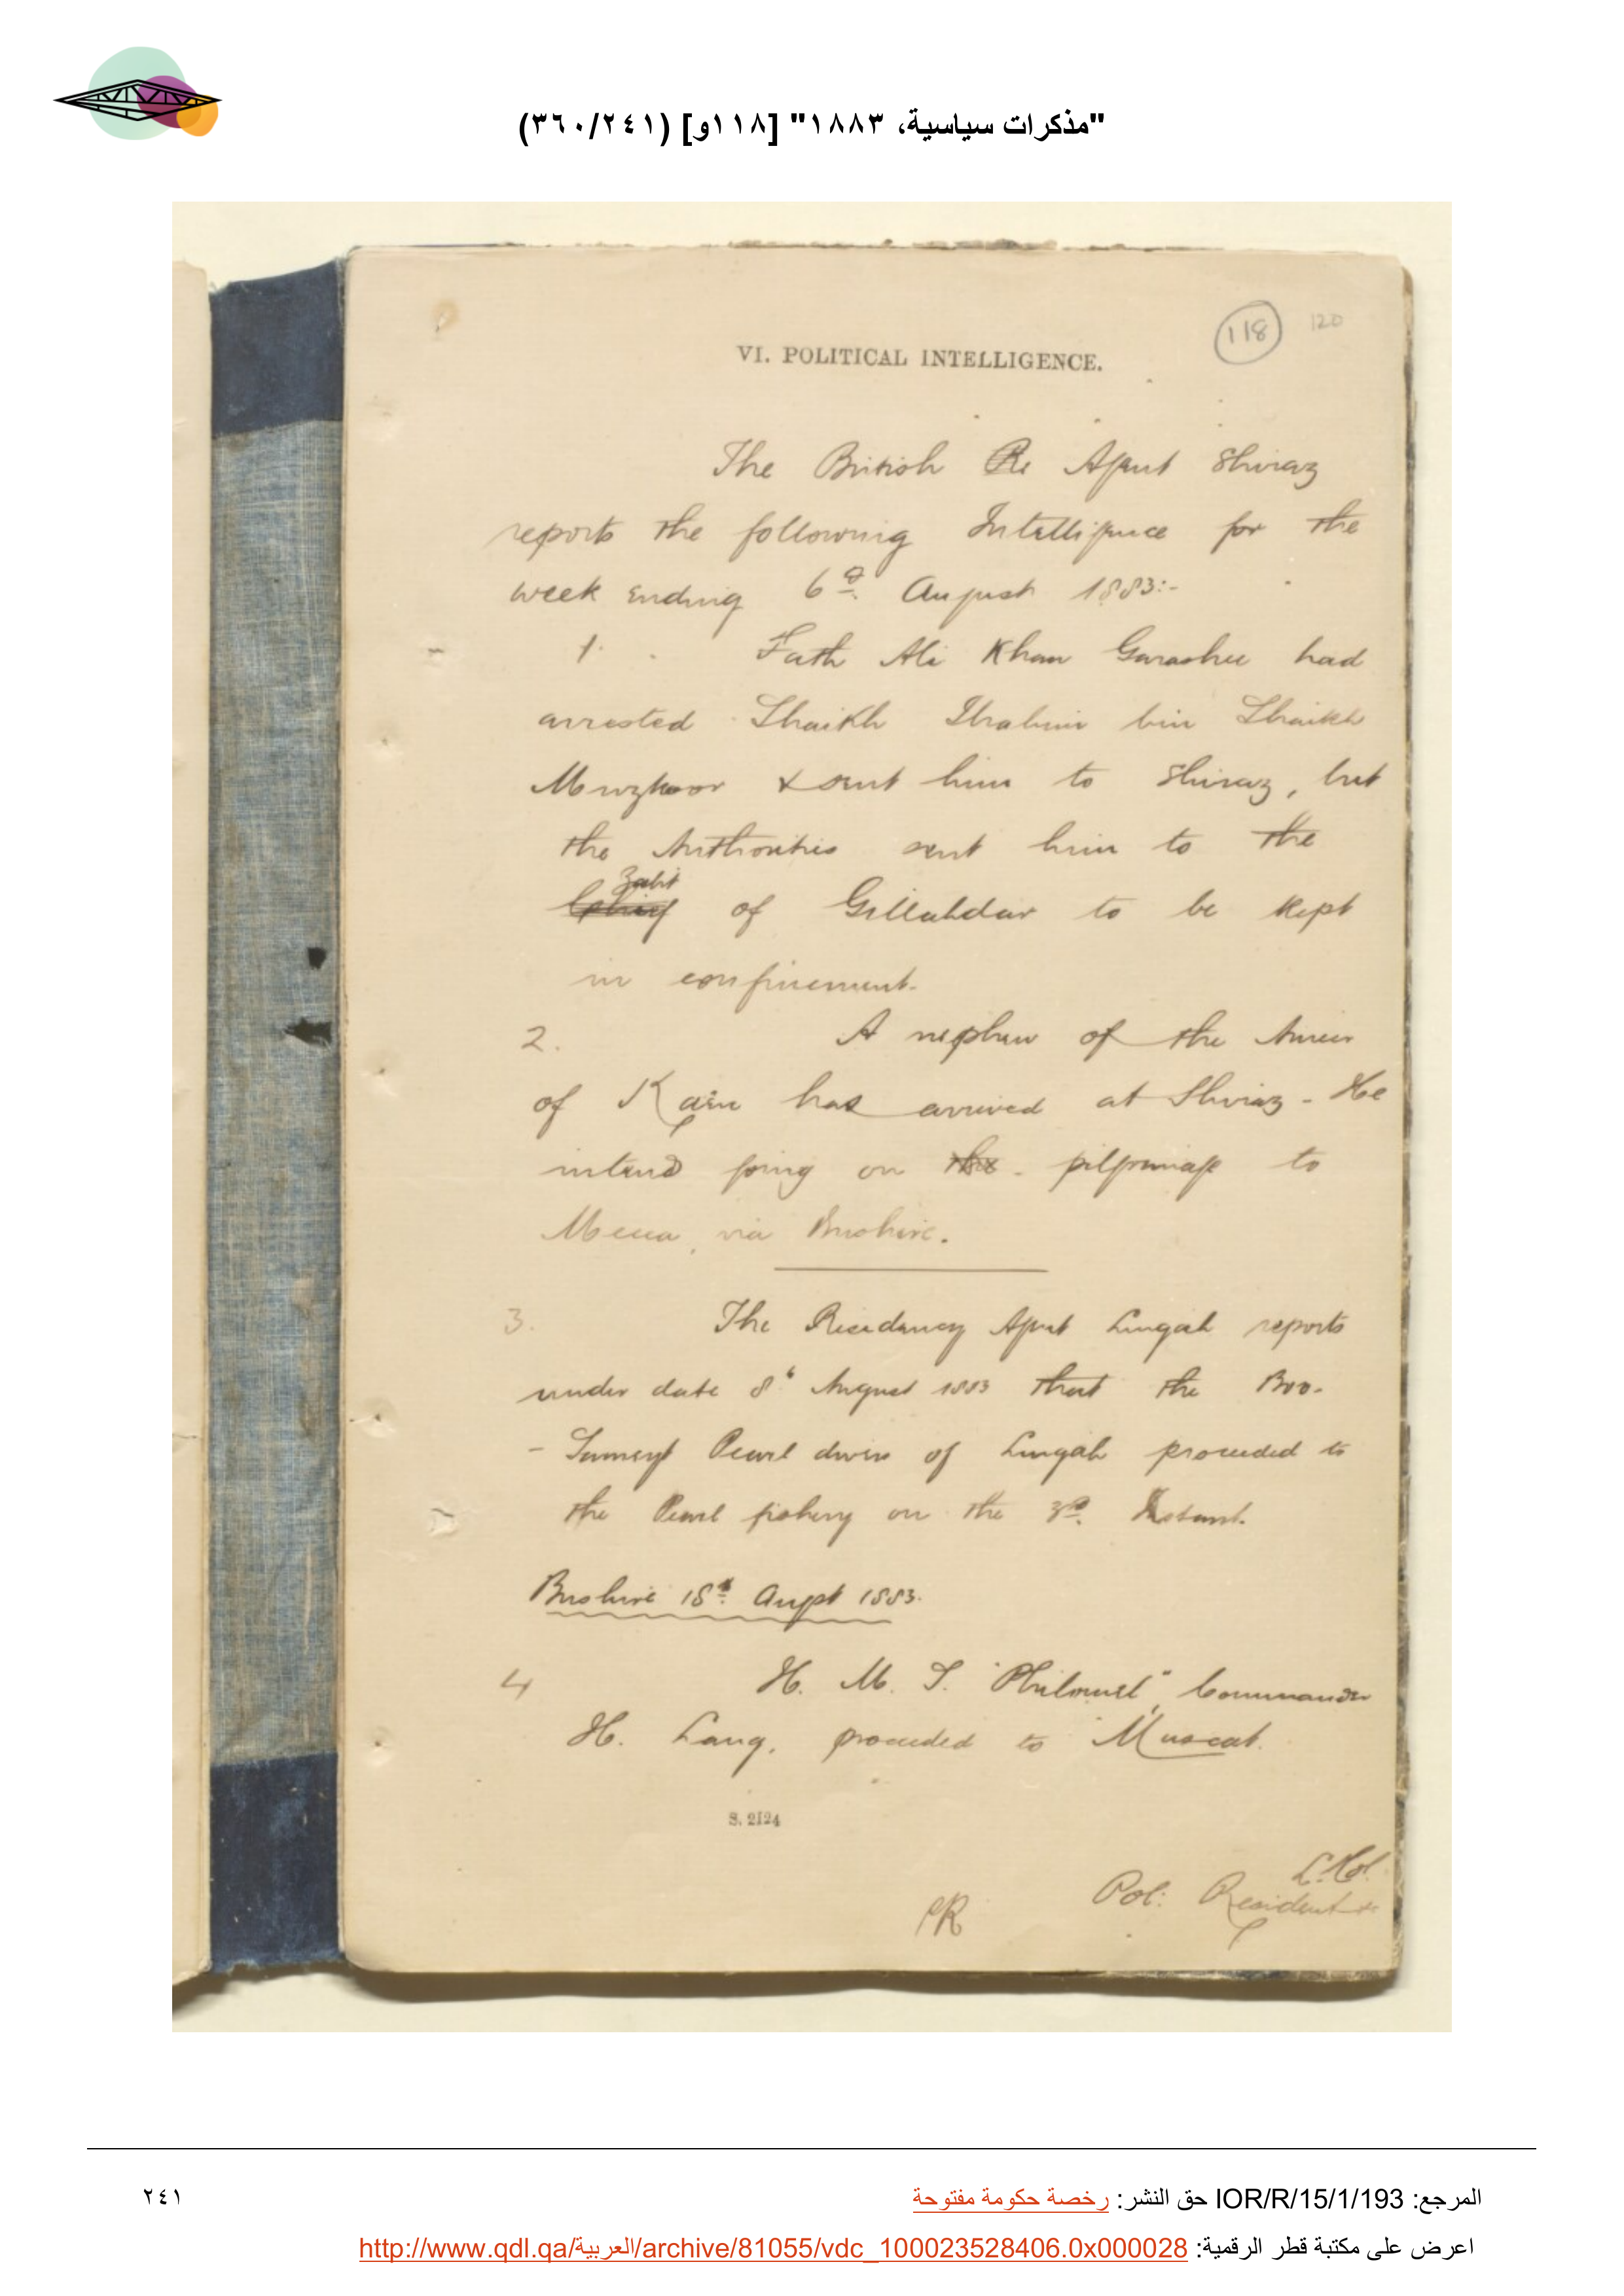 "مذكرات سياسية، ١٨٨٣" [١١٨و] (٣٦٠/٢٤١)
118 120
VI. POLITICAL INTELLIGENCE.
The British Re Agent Shiraz
reports the following Intelligence for the
week ending 6th August 1883:-
1. Fath Ali Khan Garashee had
arrested Shaikh Ibrahim bin Shaikh
Muzkoor & sent him to Shiraz, but
the Authorities sent him to the
Zabit
Chief of Gillahdar to be kept
in confinement.
2. A nephew of the Ameer
of Kain has arrived at Shiraz - He
intend going on the pilgrimage to
Mecca, via Bushire.
3. The Residency Agent Lingah reports
under date 8th August 1883 that the Boo-
- Sumeyt Pearl divers of Lingah proceeded to
the Pearl fishery on the 3rd Instant.
Bushire 18th Augst 1883.
4 H. M. S. "Philomel", Commander
H. Lang, proceeded to Muscat.
S. 2124
Lt. Col.
PR Pol: Resident
المرجع: IOR/R/15/1/193 حق النشر: رخصة حكومة مفتوحة
٢٤١
اعرض على مكتبة قطر الرقمية: http://www.qdl.qa/العربية/archive/81055/vdc_100023528406.0x000028